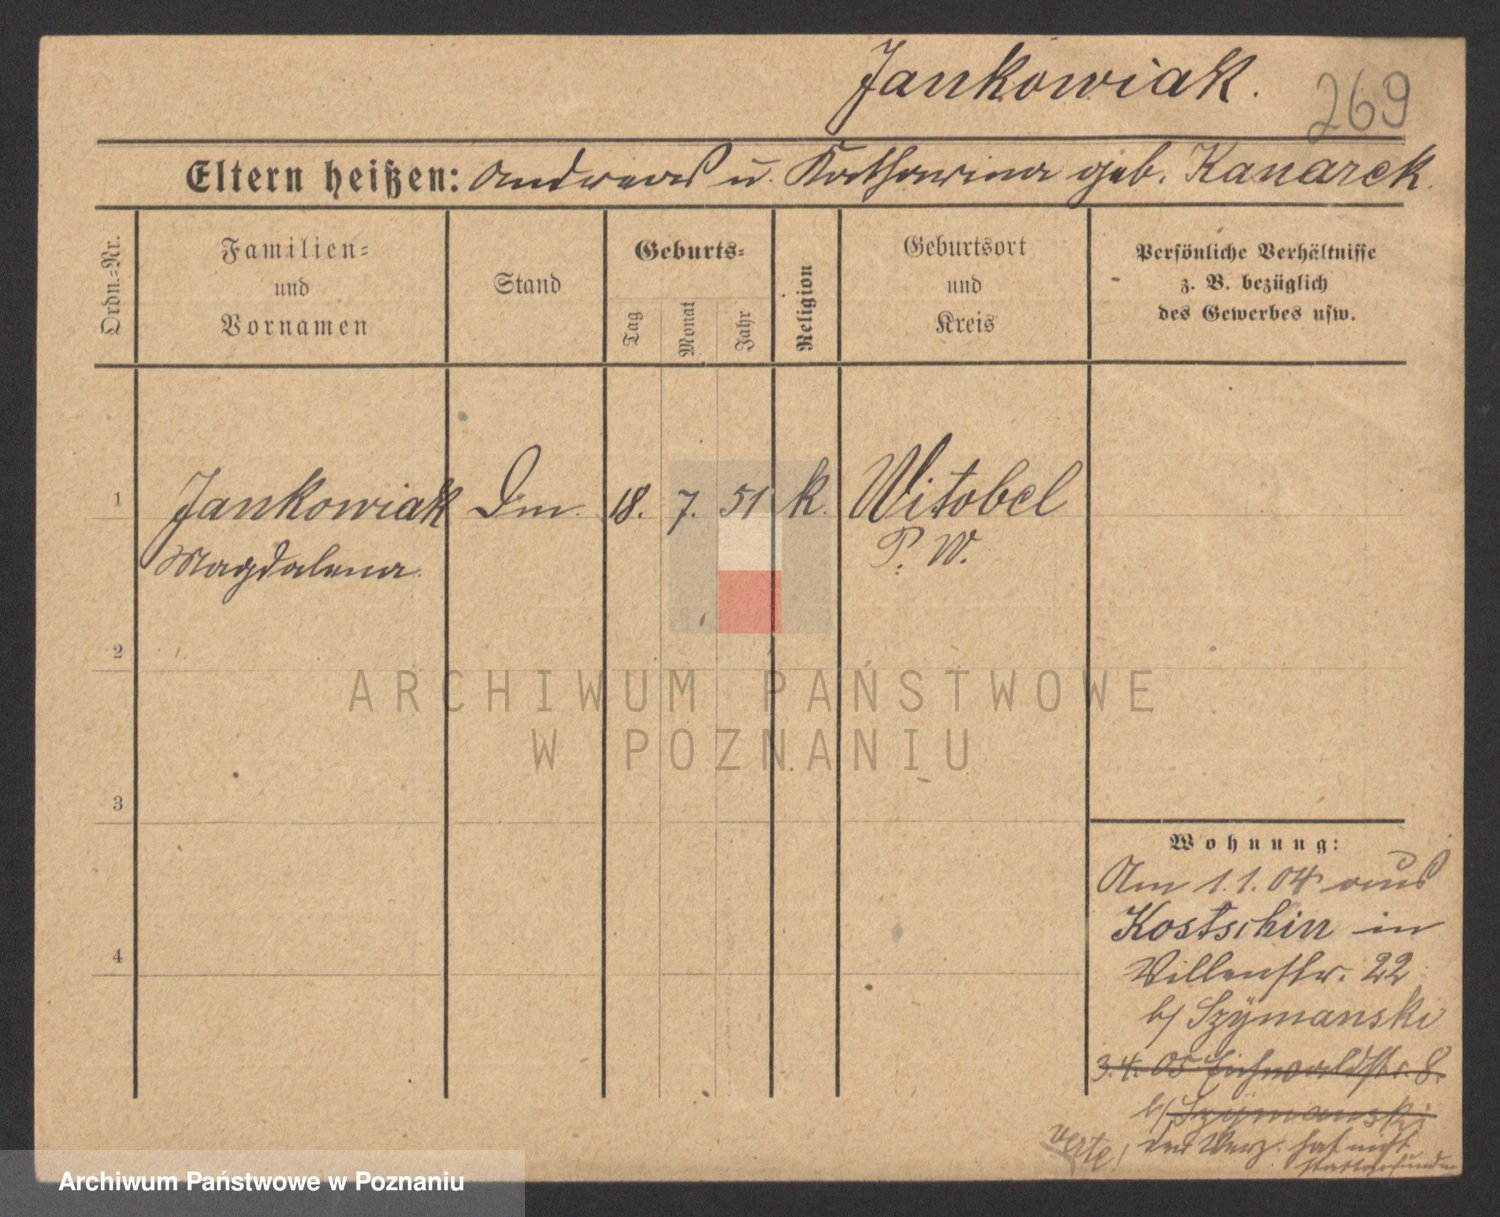 Jankowiak.
269
Eltern heißen: Andreas u. Katharina geb. Kanarek.
Ordn.-Nr.
Familien-
und
Vornamen
Stand
Geburts-
Tag
Monat
Jahr
Religion
Geburtsort
und
Kreis
Persönliche Verhältnisse
z. B. bezüglich
des Gewerbes usw.
1 Jankowiak Dm. 18. 7. 51 k. Witobel
Magdalena. P. W.
2
ARCHIWUM PAŃSTWOWE
W POZNANIU
3
Wohnung:
Am 1.1.04 aus
Kostschin in
4
Villenstr. 22
b/ Szymanski
3.4.05 Eichwaldstr. 8.
b/ Szymanski
verte!
der Verz. hat nicht
stattgefunden
Archiwum Państwowe w Poznaniu